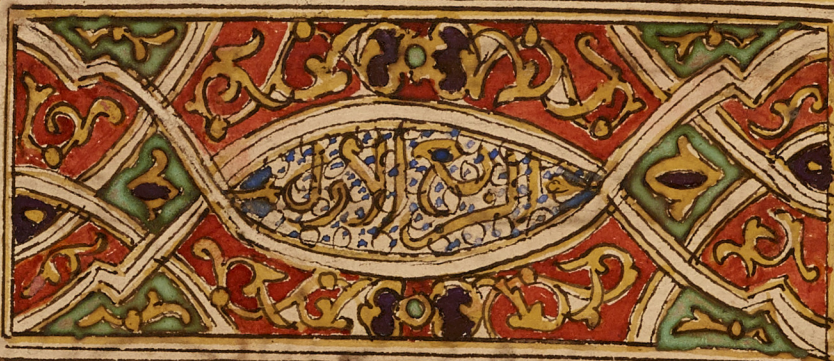 الربع الاول